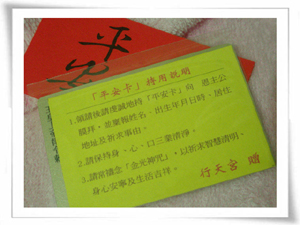 平安
「平安卡」持用說明
1.領請後請虔誠地持「平安卡」向 恩主公
膜拜,並稟報姓名、出生年月日時、居住
地址及祈求事由。
2.請保持身、心、口三業清淨。
3.請常穩念「金光神咒」,以祈求智慧清明、
身心安寧及生活吉祥。
行天宮 贈